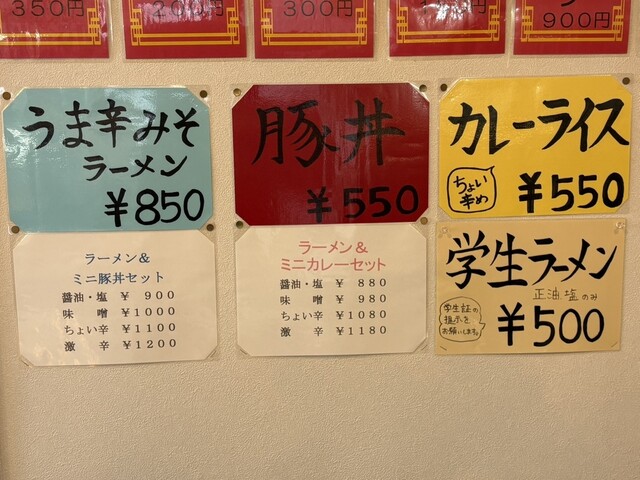 350円
200円
300円
900円
うま辛みそ
ラーメン
¥850
豚丼
¥550
カレーライス
ちょい
辛め
¥550
ラーメン&
ミニ豚丼セット
醤油・塩 ¥ 900
味 噌 ¥1000
ちょい辛 ¥1100
激 辛 ¥1200
ラーメン&
ミニカレーセット
醤油・塩 ¥ 880
味 噌 ¥ 980
ちょい辛 ¥1080
激 辛 ¥1180
学生ラーメン
正油 塩 のみ
学生証の
提示を
お願いします。
¥500